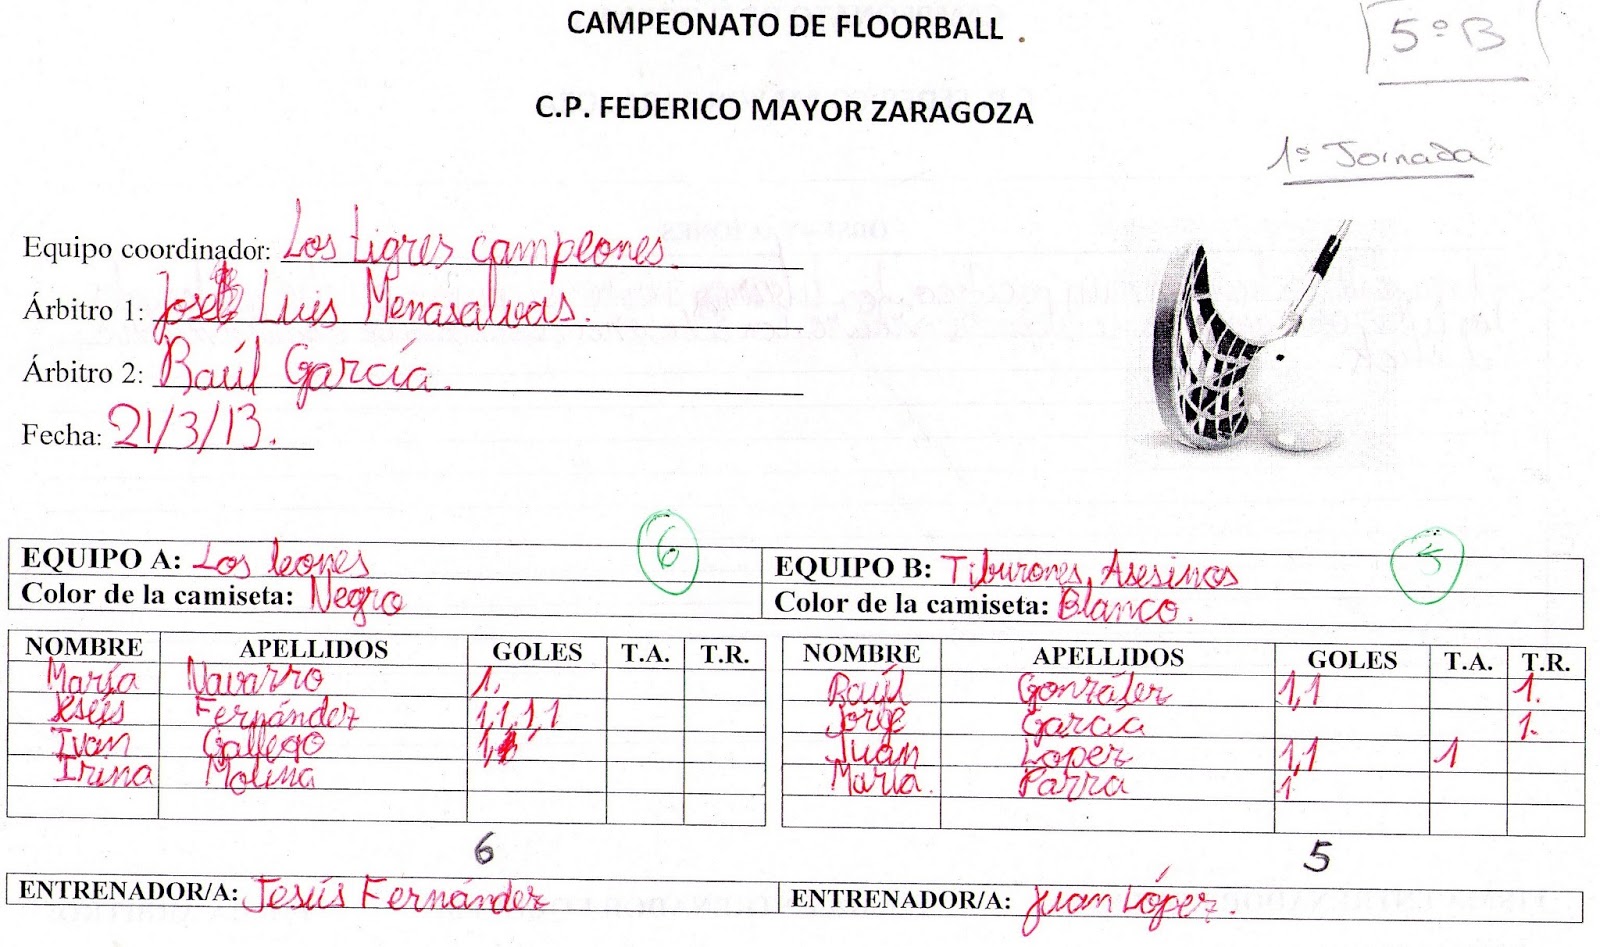 CAMPEONATO DE FLOORBALL
5º B
C.P. FEDERICO MAYOR ZARAGOZA
1ª Jornada
Equipo coordinador: Los tigres campeones.
Árbitro 1: José Luis Menasalvas.
Árbitro 2: Raúl García.
Fecha: 21/3/13.
EQUIPO A: Los leones 6 EQUIPO B: Tiburones Asesinos 5
Color de la camiseta: Negro Color de la camiseta: Blanco.
NOMBRE APELLIDOS GOLES T.A. T.R. NOMBRE APELLIDOS GOLES T.A. T.R.
María Navarro 1, Raúl González 1,1 1.
Jesús Fernández 1,1,1,1 Jorge García 1.
Iván Gallego 1, Juan López 1,1 1
Irina Molina María. Parra 1
6 5
ENTRENADOR/A: Jesús Fernández ENTRENADOR/A: Juan López.